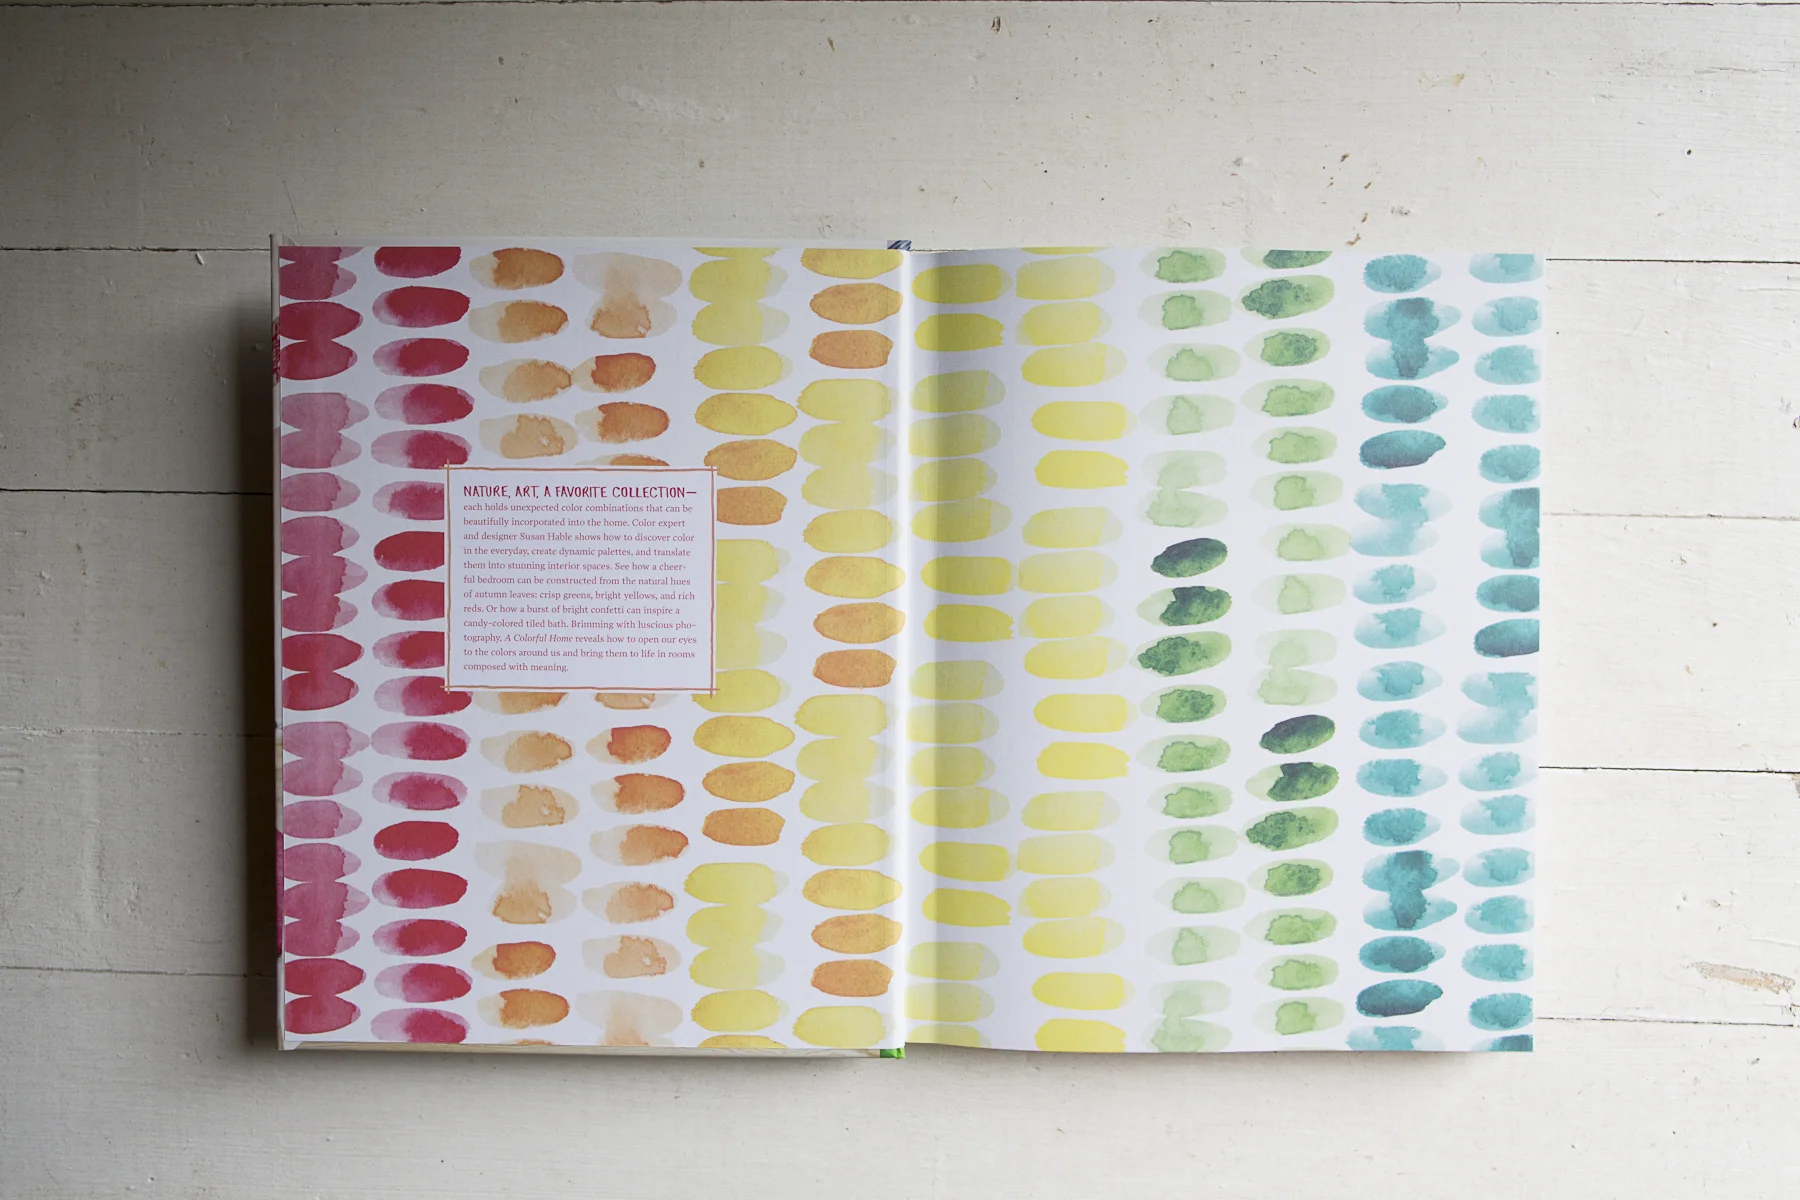 NATURE, ART, A FAVORITE COLLECTION—
each holds unexpected color combinations that can be
beautifully incorporated into the home. Color expert
and designer Susan Hable shows how to discover color
in the everyday, create dynamic palettes, and translate
them into stunning interior spaces. See how a cheer-
ful bedroom can be constructed from the natural hues
of autumn leaves: crisp greens, bright yellows, and rich
reds. Or how a burst of bright confetti can inspire a
candy-colored tiled bath. Brimming with luscious pho-
tography, A Colorful Home reveals how to open our eyes
to the colors around us and bring them to life in rooms
composed with meaning.